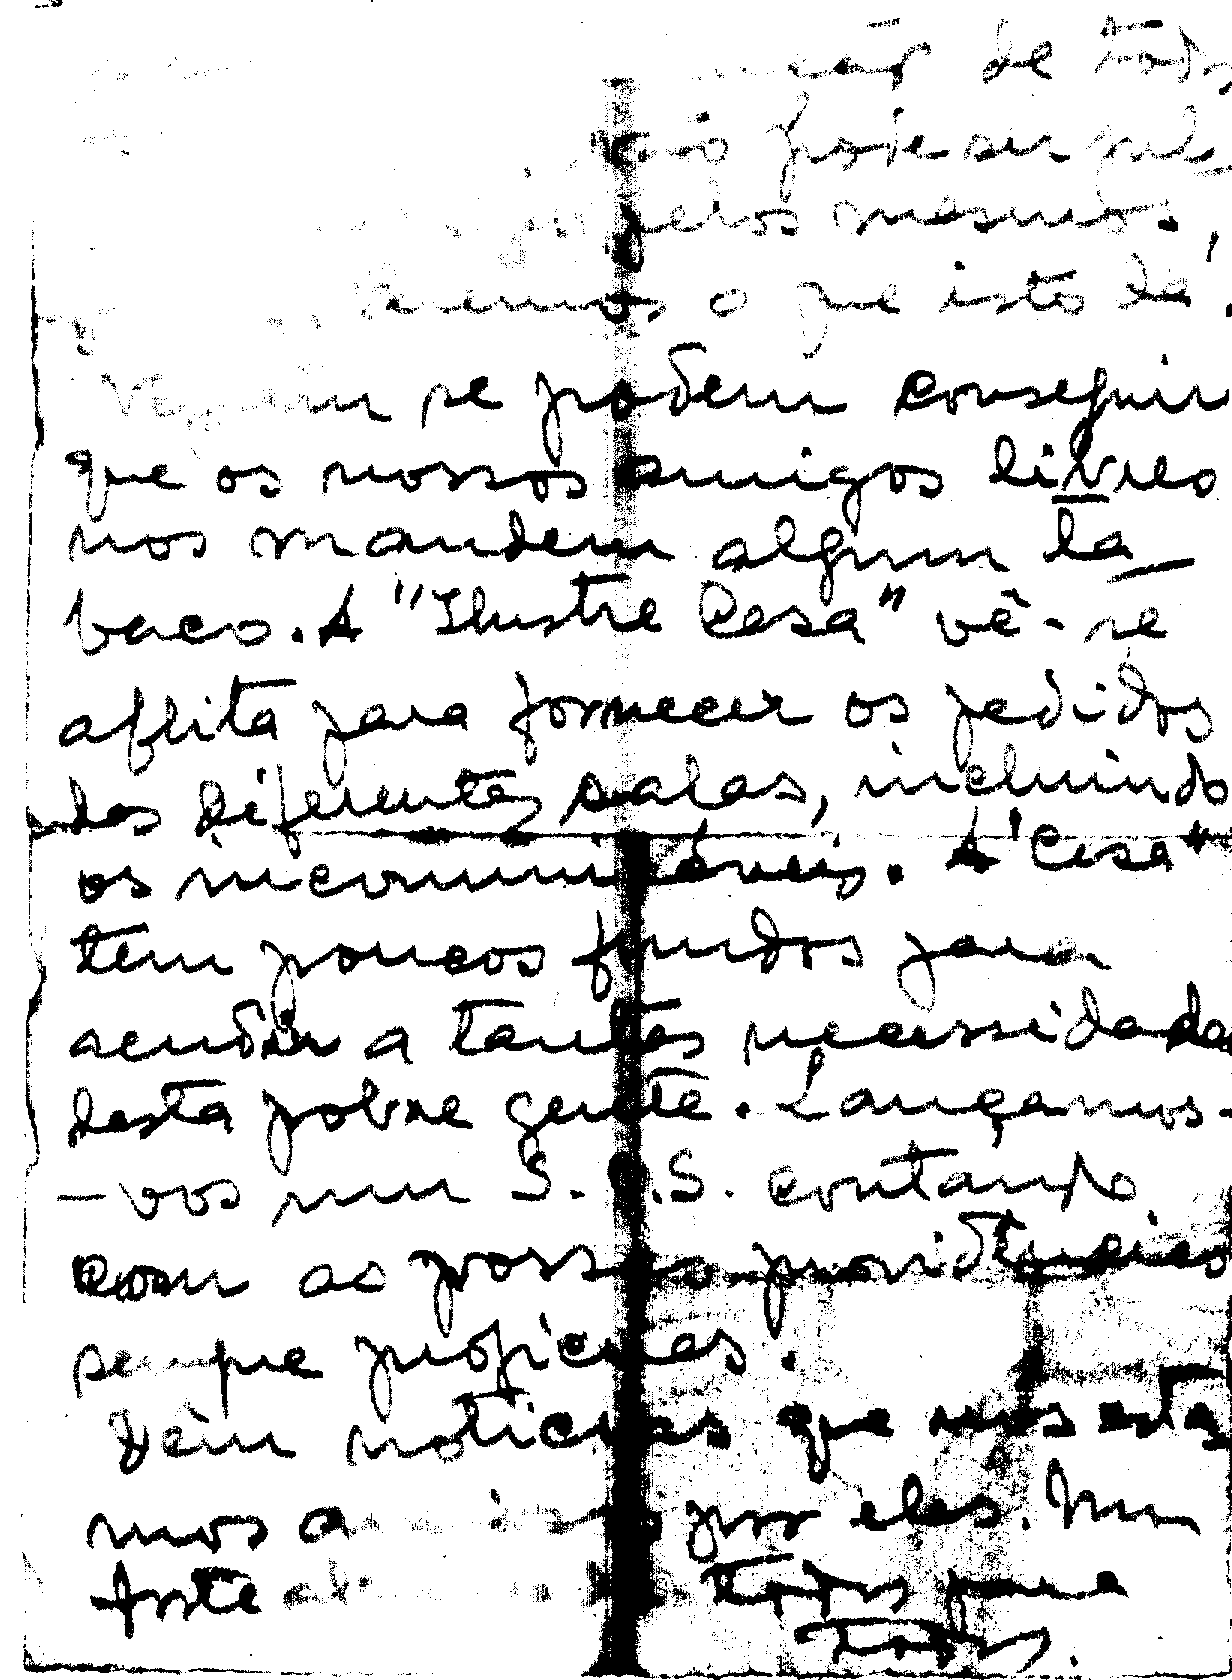 de todos
não pode ser
pelos mesmos,
Veremos o que isto dá.
Vejam se podem conseguir
que os nossos amigos livres
nos mandem algum ta_
baco. A "Ilustre Casa" vê-se
aflita para fornecer os pedidos
das diferentes salas, incluindo
os incomunicáveis. A "Casa"
tem poucos fundos para
acudir a tantas necessidades
desta pobre gente. Lançamos-
-vos um S.O.S. contando
com as vossas providências
sempre profícuas.
Dêm noticias que nós esta
mos ansiosos por elas. Um
forte abraço de todos para
todos.